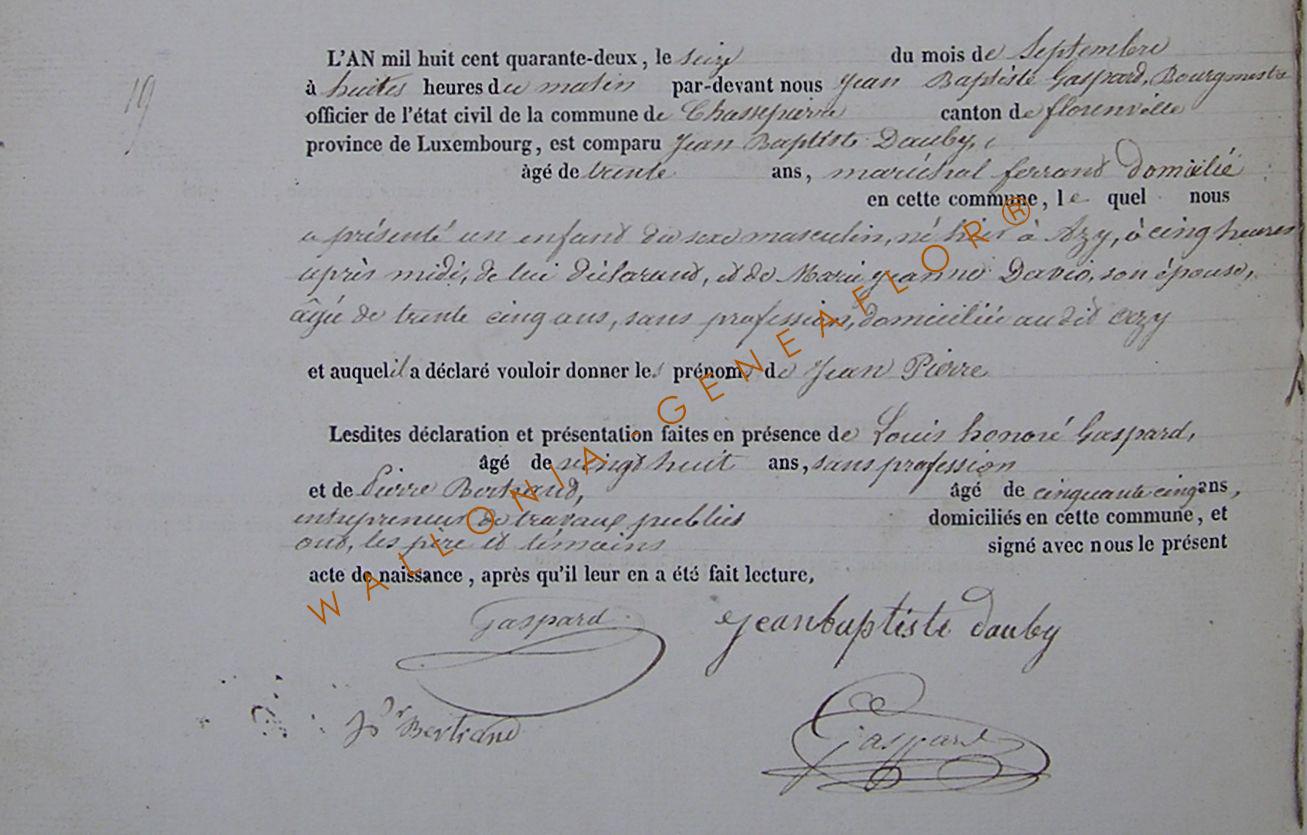 19
L'AN mil huit cent quarante-deux, le seize du mois de Septembre
à huites heures du matin par-devant nous Jean Baptiste Gaspard, Bourgmestre
officier de l'état civil de la commune de Chassepierre canton de florenville
province de Luxembourg, est comparu Jean Baptiste Dauby,
àgé de trente ans, maréchal ferrand domicilié
en cette commune, le quel nous
a présenté un enfant du sexe masculin, né hier à Azy, à cinq heures
après midi, de lui déclarant, et de Marie Jeanne Davio, son épouse,
âgée de trente cinq ans, sans profession, domiciliée audit Azy
et auquel il a déclaré vouloir donner les prénoms de Jean Pierre
Lesdites déclaration et présentation faites en présence de Louis honoré Gaspard,
âgé de vingt huit ans, sans profession
et de Pierre Bertrand, âgé de cinquante cinq ans,
entrepreneur de travaux publics domiciliés en cette commune, et
ont, les père et témoins signé avec nous le présent
acte de naissance, après qu'il leur en a été fait lecture,
Gaspard Jean baptiste dauby
Pr Bertrand Gaspard
WALLONIA-GENEAFLOR®